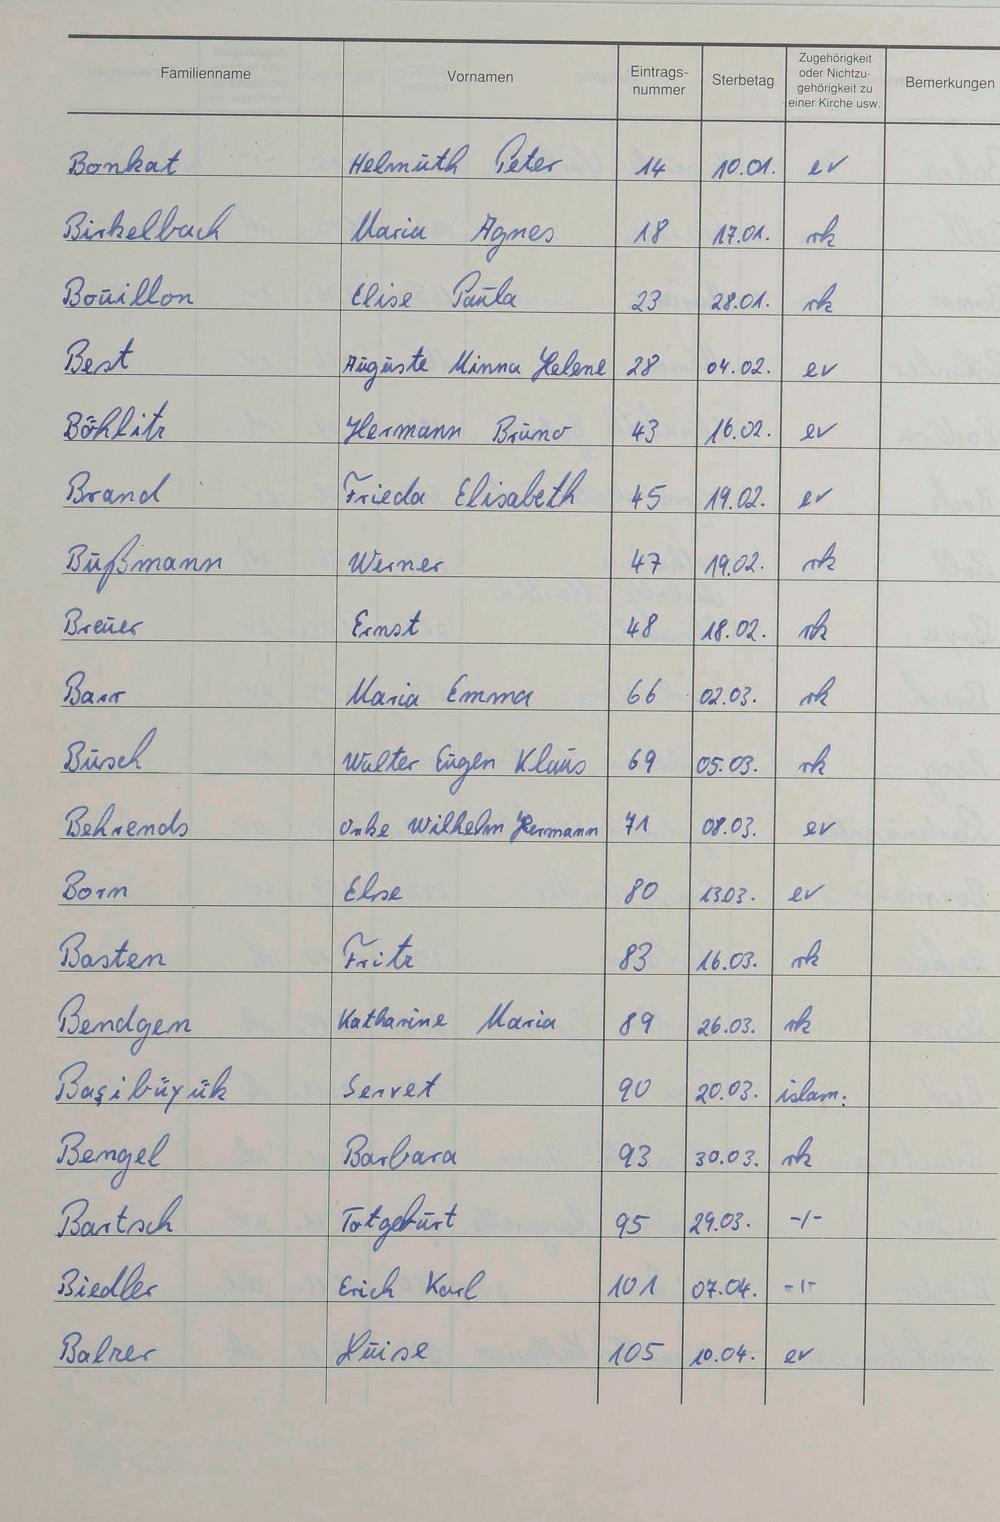 Familienname Vornamen Eintrags-nummer Sterbetag Zugehörigkeit oder Nichtzu-gehörigkeit zu einer Kirche usw. Bemerkungen
Bonkat Helmuth Peter 14 10.01. ev
Birkelbach Maria Agnes 18 17.01. rk
Bouillon Elise Paula 23 28.01. rk
Best Auguste Minna Helene 28 04.02. ev
Böhlitz Hermann Bruno 43 16.02. ev
Brand Frieda Elisabeth 45 19.02. ev
Bußmann Werner 47 19.02. rk
Breuer Ernst 48 18.02. rk
Barr Maria Emma 66 02.03. rk
Busch Walter Eugen Klaus 69 05.03. rk
Behrends Wilhelm Hermann 71 08.03. ev
Born Else 80 13.03. ev
Basten Fritz 83 16.03. rk
Bendgen Katharine Maria 89 26.03. rk
Başibüyük Servet 90 20.03. islam.
Bengel Barbara 93 30.03. rk
Bartsch Totgeburt 95 29.03. -/-
Biedler Erich Karl 101 07.04. -/-
Balzer 105 10.04. ev